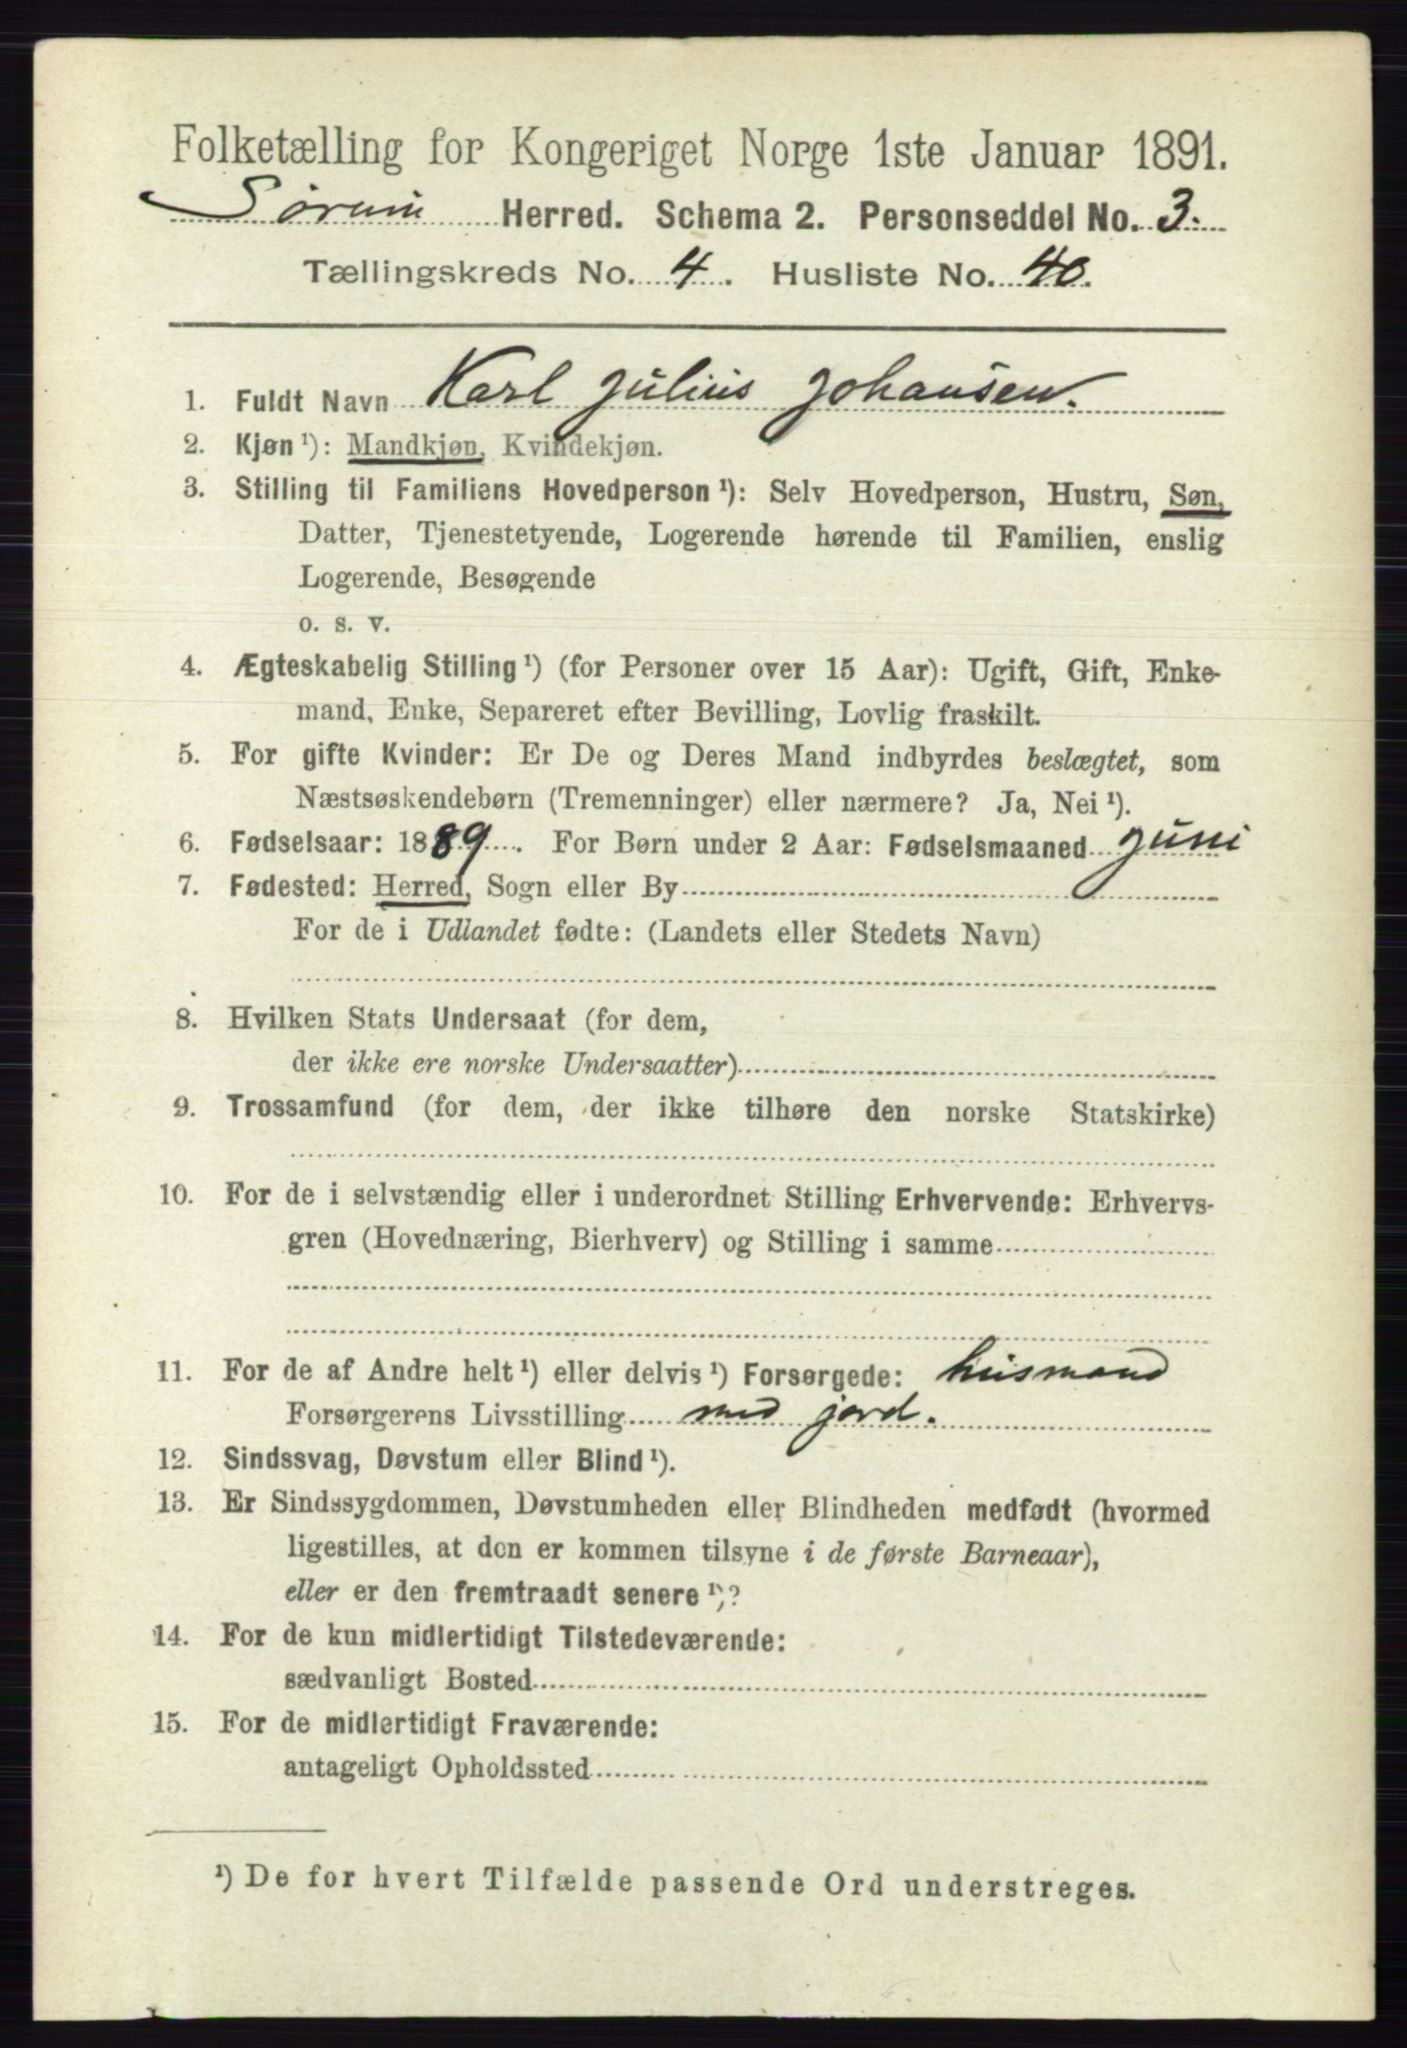 Folketælling for Kongeriget Norge 1ste Januar 1891.
Sørum Herred. Schema 2. Personseddel No. 3.
Tællingskreds No. 4. Husliste No. 40.
1. Fuldt Navn Karl Julius Johansen.
2. Kjøn¹): Mandkjøn, Kvindekjøn.
3. Stilling til Familiens Hovedperson¹): Selv Hovedperson, Hustru, Søn,
Datter, Tjenestetyende, Logerende hørende til Familien, enslig
Logerende, Besøgende
o. s. v.
4. Ægteskabelig Stilling¹) (for Personer over 15 Aar): Ugift, Gift, Enke-
mand, Enke, Separeret efter Bevilling, Lovlig fraskilt.
5. For gifte Kvinder: Er De og Deres Mand indbyrdes beslægtet, som
Næstsøskendebørn (Tremenninger) eller nærmere? Ja, Nei¹).
6. Fødselsaar: 1889. For Børn under 2 Aar: Fødselsmaaned Juni
7. Fødested: Herred, Sogn eller By
For de i Udlandet fødte: (Landets eller Stedets Navn)
8. Hvilken Stats Undersaat (for dem,
der ikke ere norske Undersaatter)
9. Trossamfund (for dem, der ikke tilhøre den norske Statskirke)
10. For de i selvstændig eller i underordnet Stilling Erhvervende: Erhvervs-
gren (Hovednæring, Bierhverv) og Stilling i samme
11. For de af Andre helt¹) eller delvis¹) Forsørgede: husmand
Forsørgerens Livsstilling med jord.
12. Sindssvag, Døvstum eller Blind¹).
13. Er Sindssygdommen, Døvstumheden eller Blindheden medfødt (hvormed
ligestilles, at den er kommen tilsyne i de første Barneaar),
eller er den fremtraadt senere¹)?
14. For de kun midlertidigt Tilstedeværende:
sædvanligt Bosted
15. For de midlertidigt Fraværende:
antageligt Opholdssted
¹) De for hvert Tilfælde passende Ord understreges.